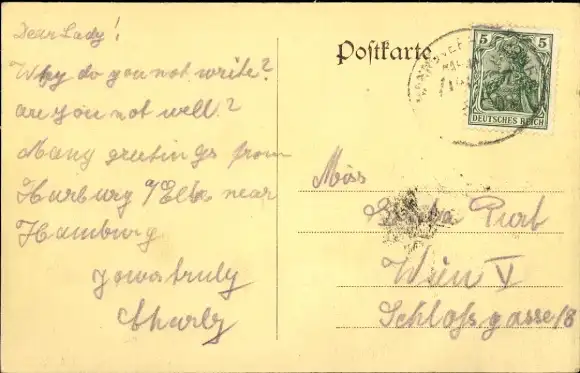 Dear Lady!
Why do you not write?
are you not well?
Many greetings from
Harburg a/Elbe near
Hamburg
yours truly
Charly
Postkarte
5 5
DEUTSCHES REICH
Miss
Wien V
Schlossgasse 18